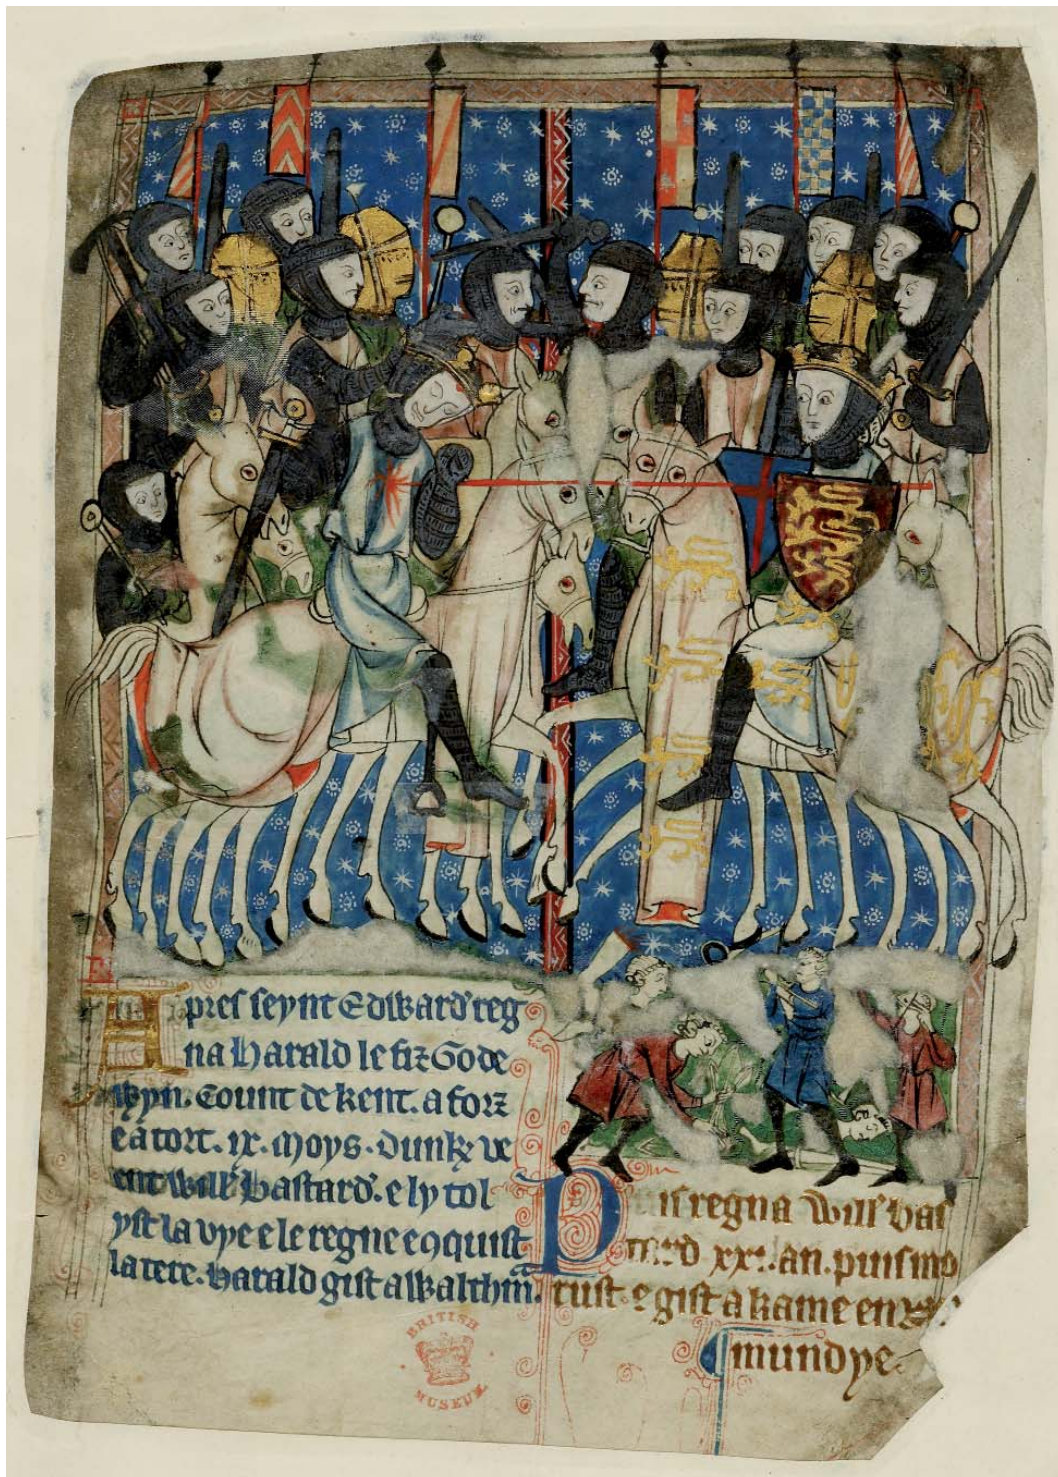 Apres seynt Edward reg
na Harald le fiz Gode
wyn. Count de kent. a forz
e a tort. ix. moys. dunk ve
ent Will bastard. e ly tol
yst la vye e le regne e conquist
la tere. Harald gist a Waltham.
Puis regna Will bas
tard xx. an. puis mo
rust. e gist a kame en
mundye.
BRITISH
MUSEUM